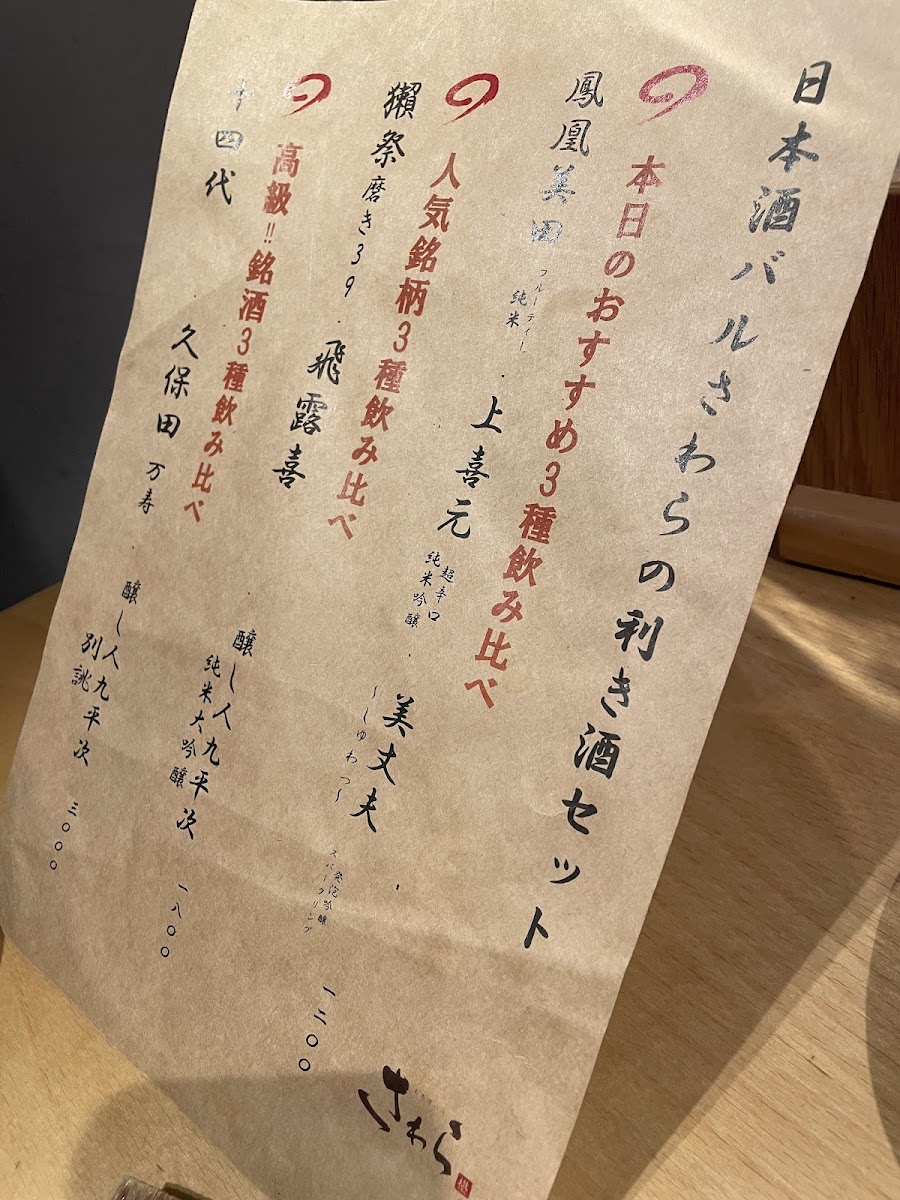 日本酒バルさわらの利き酒セット
本日のおすすめ3種飲み比べ
鳳凰美田 フルーティー 純米 ・ 上喜元 超辛口 純米吟醸 ・ 美丈夫 ～しゅわっ～ ・ 発泡吟醸 スパークリング 一二〇〇
人気銘柄3種飲み比べ
獺祭 磨き39 ・ 飛露喜 醸し人九平次 純米大吟醸 一八〇〇
高級!!銘酒3種飲み比べ
十四代 久保田 万寿 ・ 醸し人九平次 別誂 三〇〇〇
さわら